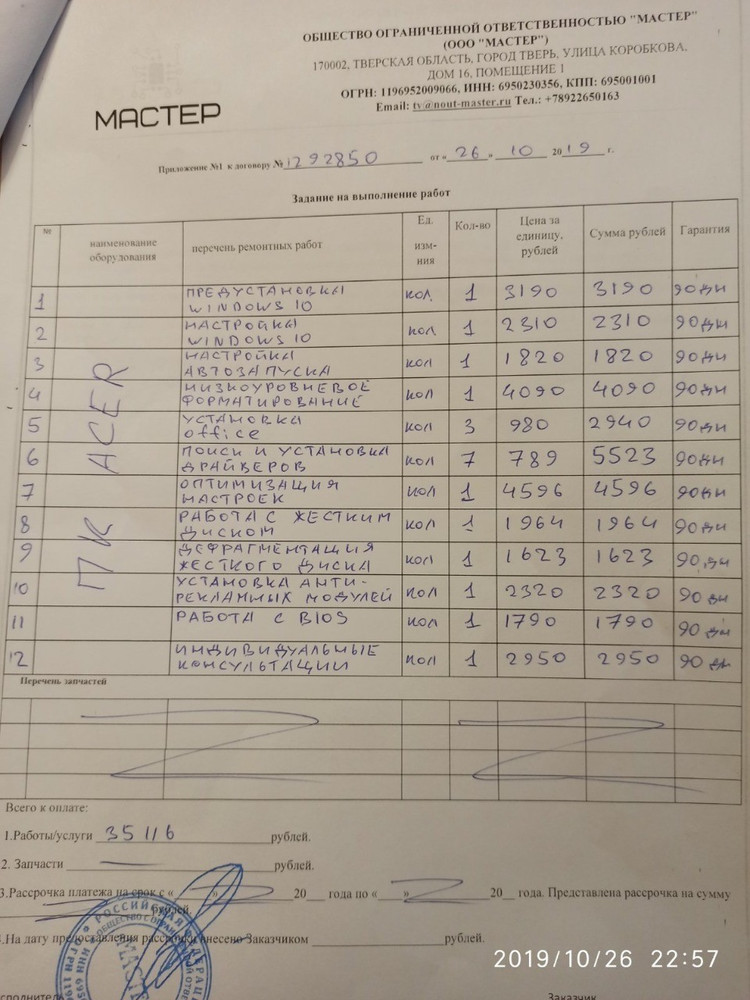 ОБЩЕСТВО ОГРАНИЧЕННОЙ ОТВЕТСТВЕННОСТЬЮ "МАСТЕР"
(ООО "МАСТЕР")
170002, ТВЕРСКАЯ ОБЛАСТЬ, ГОРОД ТВЕРЬ, УЛИЦА КОРОБКОВА,
ДОМ 16, ПОМЕЩЕНИЕ 1
ОГРН: 1196952009066, ИНН: 6950230356, КПП: 695001001
Email: tv@nout-master.ru Тел.: +78922650163
МАСТЕР
Приложение №1 к договору № 1292850 от «26» 10 2019 г.
Задание на выполнение работ
№ наименование оборудования перечень ремонтных работ Ед. изм-ния Кол-во Цена за единицу, рублей Сумма рублей Гарантия
ПК ACER
1 ПРЕДУСТАНОВКА WINDOWS 10 кол. 1 3190 3190 90дн
2 НАСТРОЙКА WINDOWS 10 кол 1 2310 2310 90дн
3 НАСТРОЙКА АВТОЗАПУСКА кол 1 1820 1820 90дн
4 НИЗКОУРОВНЕВОЕ ФОРМАТИРОВАНИЕ кол 1 4090 4090 90дн
5 УСТАНОВКА office кол 3 980 2940 90дн
6 ПОИСК И УСТАНОВКА ДРАЙВЕРОВ кол 7 789 5523 90дн
7 ОПТИМИЗАЦИЯ НАСТРОЕК кол 1 4596 4596 90дн
8 РАБОТА С ЖЕСТКИМ ДИСКОМ кол 1 1964 1964 90дн
9 ДЕФРАГМЕНТАЦИЯ ЖЕСТКОГО ДИСКА кол 1 1623 1623 90дн
10 УСТАНОВКА АНТИ-РЕКЛАМНЫХ МОДУЛЕЙ кол 1 2320 2320 90дн
11 РАБОТА С BIOS кол 1 1790 1790 90дн
12 ИНДИВИДУАЛЬНЫЕ КОНСУЛЬТАЦИИ кол 1 2950 2950 90дн
Перечень запчастей
Всего к оплате:
1.Работы/услуги 35116 рублей.
2. Запчасти рублей.
3.Рассрочка платежа на срок с « » 20 года по « » 20 года. Представлена рассрочка на сумму
рублей.
.На дату предоставления рассрочки внесено Заказчиком рублей.
РОССИЙСКАЯ ФЕДЕРАЦИЯ
Заказчик
2019/10/26 22:57